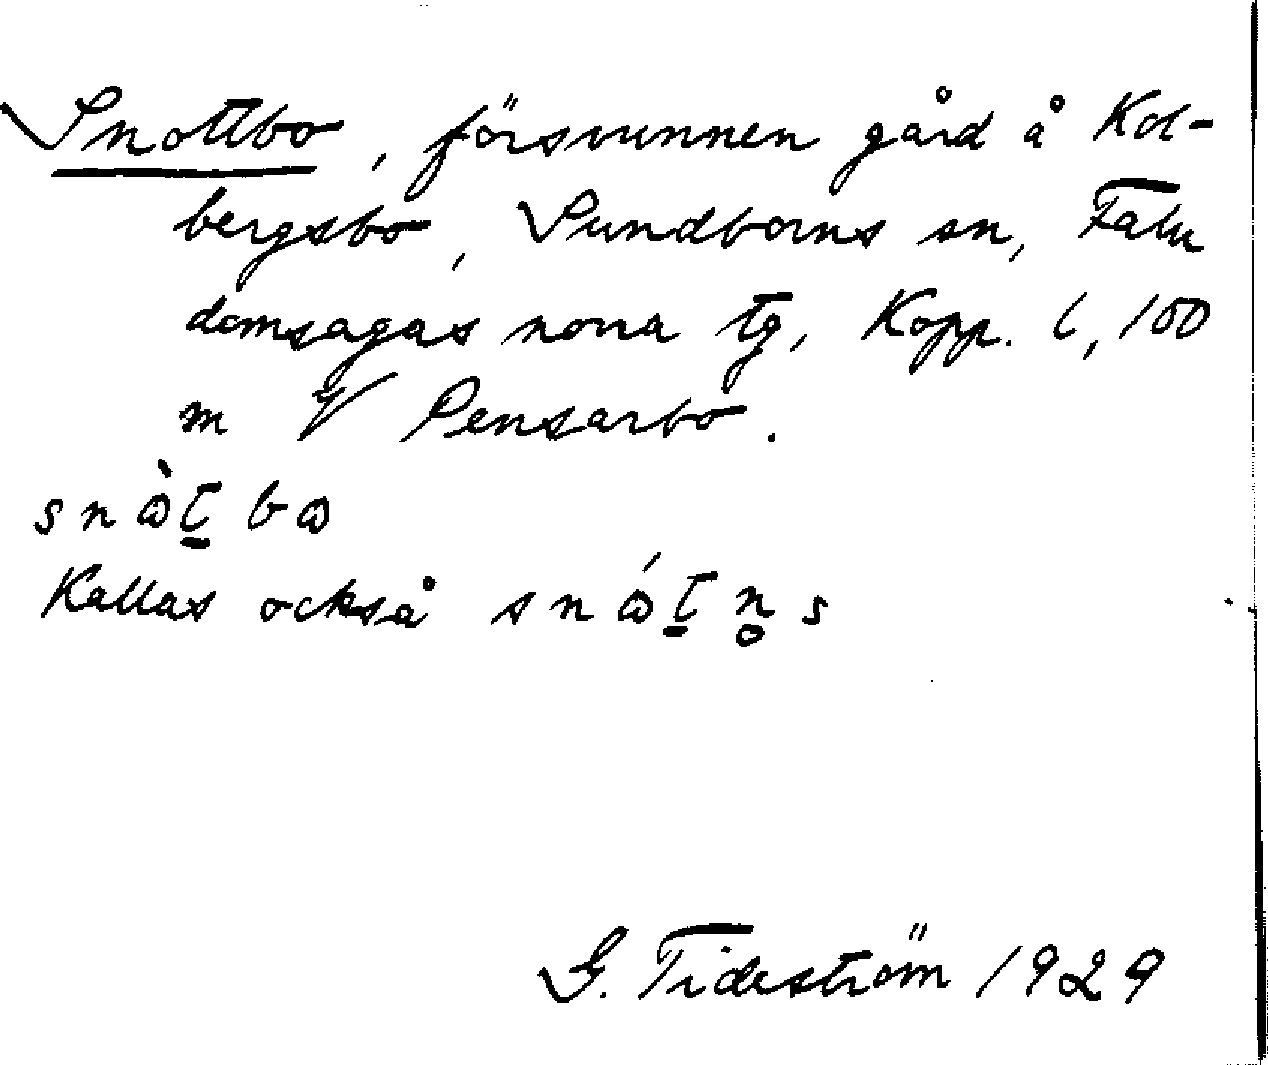 Snottbo, försvunnen gård å Kol-
bergsbo, Sundborns sn, Falu
domsagas norra tg, Kopp. l, 100
m V Pensarbo.
snὼt̠bω
Kallas också snώt̠n̥s
G. Tideström 1929